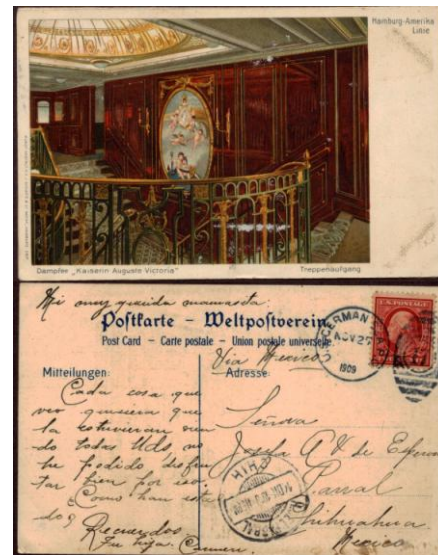 Hamburg-Amerika
Linie
Dampfer „Kaiserin Auguste Victoria"
Treppenaufgang
Mi muy querida mamacita:
Postkarte - Weltpostverein
Post Card - Carte postale - Union postale universelle
Via Mexico
Mitteilungen:
Adresse:
U.S. POSTAGE
GERMAN
NOV 27
1909
Cada cosa que
veo quisiera que
la estuvieran vien
do todas Uds, no
he podido disfru
tar bien por eso.
Como han esta
do?
Recuerdos
Tu hija, Carmen.
Señora
Josefa A V de
Parral
Chihuahua
Mexico
CHIH